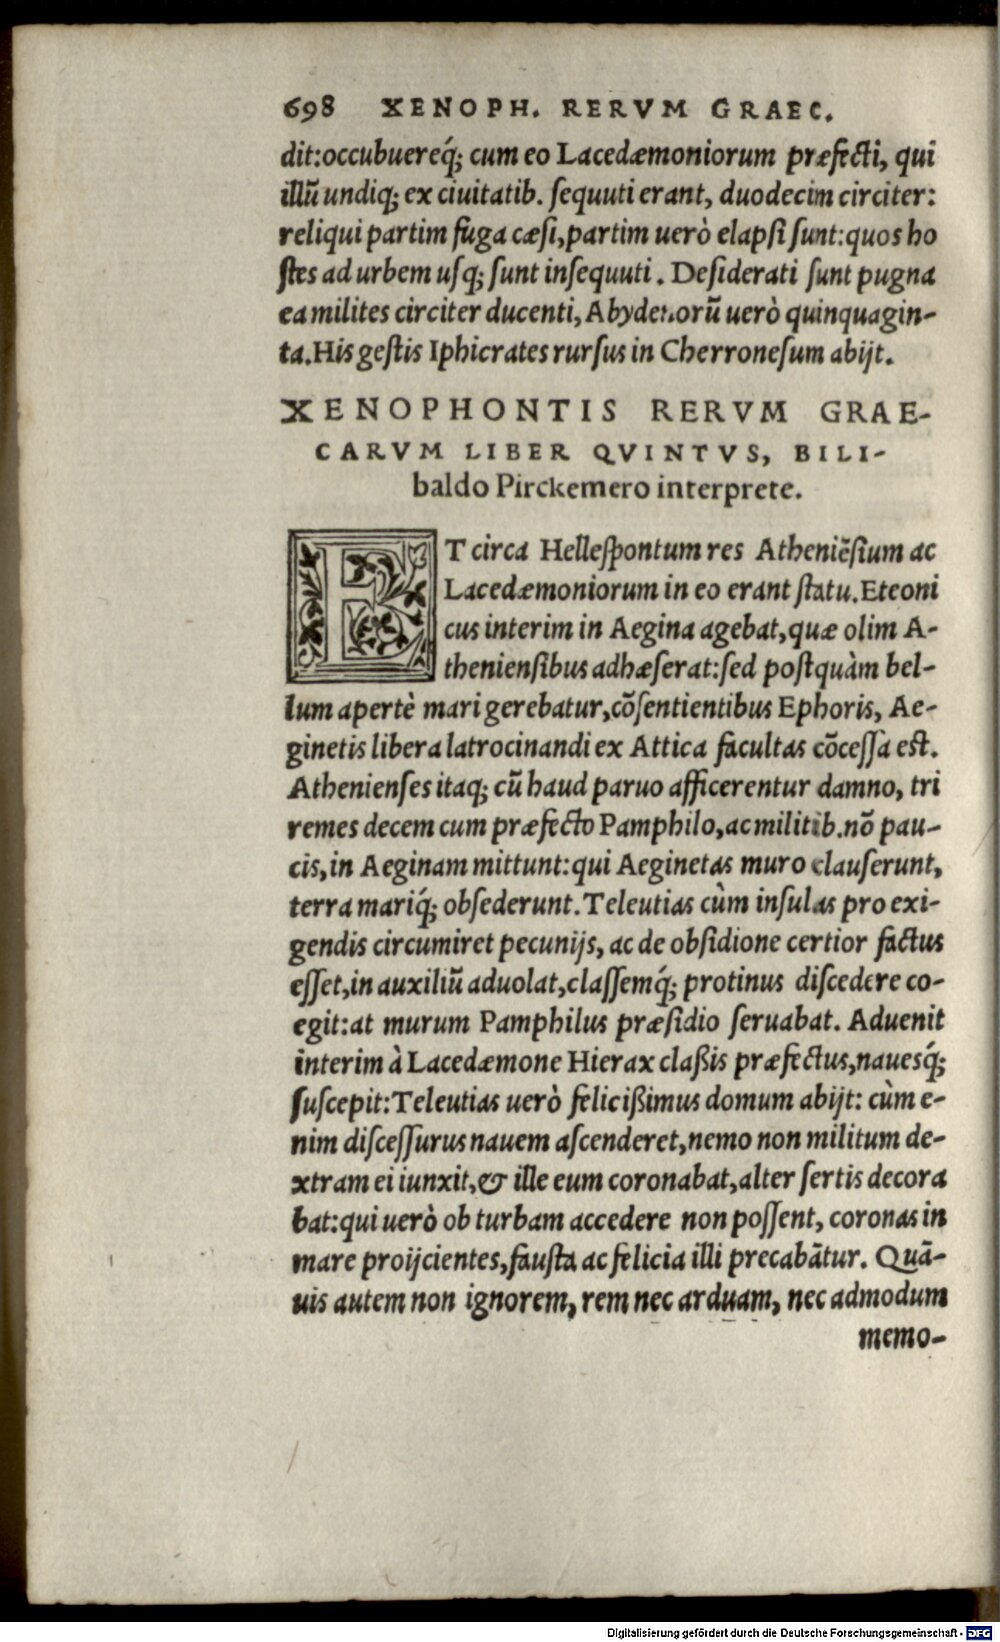 698 XENOPH. RERVM GRAEC.
dit:occubuereq́; cum eo Lacedæmoniorum præfecti, qui
illũ undiq; ex ciuitatib. ſequuti erant, duodecim circiter:
reliqui partim fuga cæſi,partim uerò elapſi ſunt:quos ho
ſtes ad urbem uſq; ſunt inſequuti. Deſiderati ſunt pugna
ea milites circiter ducenti, Abydenorũ uerò quinquagin-
ta.His geſtis Iphicrates rurſus in Cherroneſum abijt.
XENOPHONTIS RERVM GRAE-
CARVM LIBER QVINTVS, BILI-
baldo Pirckemero interprete.
ET circa Helleſpontum res Atheniẽſium ac
Lacedæmoniorum in eo erant ſtatu.Eteoni
cus interim in Aegina agebat,quæ olim A-
thenienſibus adhæſerat:ſed poſtquàm bel-
lum apertè mari gerebatur,cõſentientibus Ephoris, Ae-
ginetis libera latrocinandi ex Attica facultas cõceſſa eſt.
Athenienſes itaq; cũ haud paruo afficerentur damno, tri
remes decem cum præfecto Pamphilo,ac militib.nõ pau-
cis,in Aeginam mittunt:qui Aeginetas muro clauſerunt,
terra mariq́; obſederunt.Teleutias cùm inſulas pro exi-
gendis circumiret pecunijs, ac de obſidione certior factus
eſſet,in auxiliũ aduolat,claſſemq́; protinus diſcedere co-
egit:at murum Pamphilus præſidio ſeruabat. Aduenit
interim à Lacedæmone Hierax claßis præfectus,naueſq́;
ſuſcepit:Teleutias uerò felicißimus domum abijt: cùm e-
nim diſceſſurus nauem aſcenderet,nemo non militum de-
xtram ei iunxit,& ille eum coronabat,alter ſertis decora
bat:qui uerò ob turbam accedere non poſſent, coronas in
mare proijcientes,fauſta ac felicia illi precabãtur. Quã-
uis autem non ignorem, rem nec arduam, nec admodum
memo-
Digitalisierung gefördert durch die Deutsche Forschungsgemeinschaft - DFG